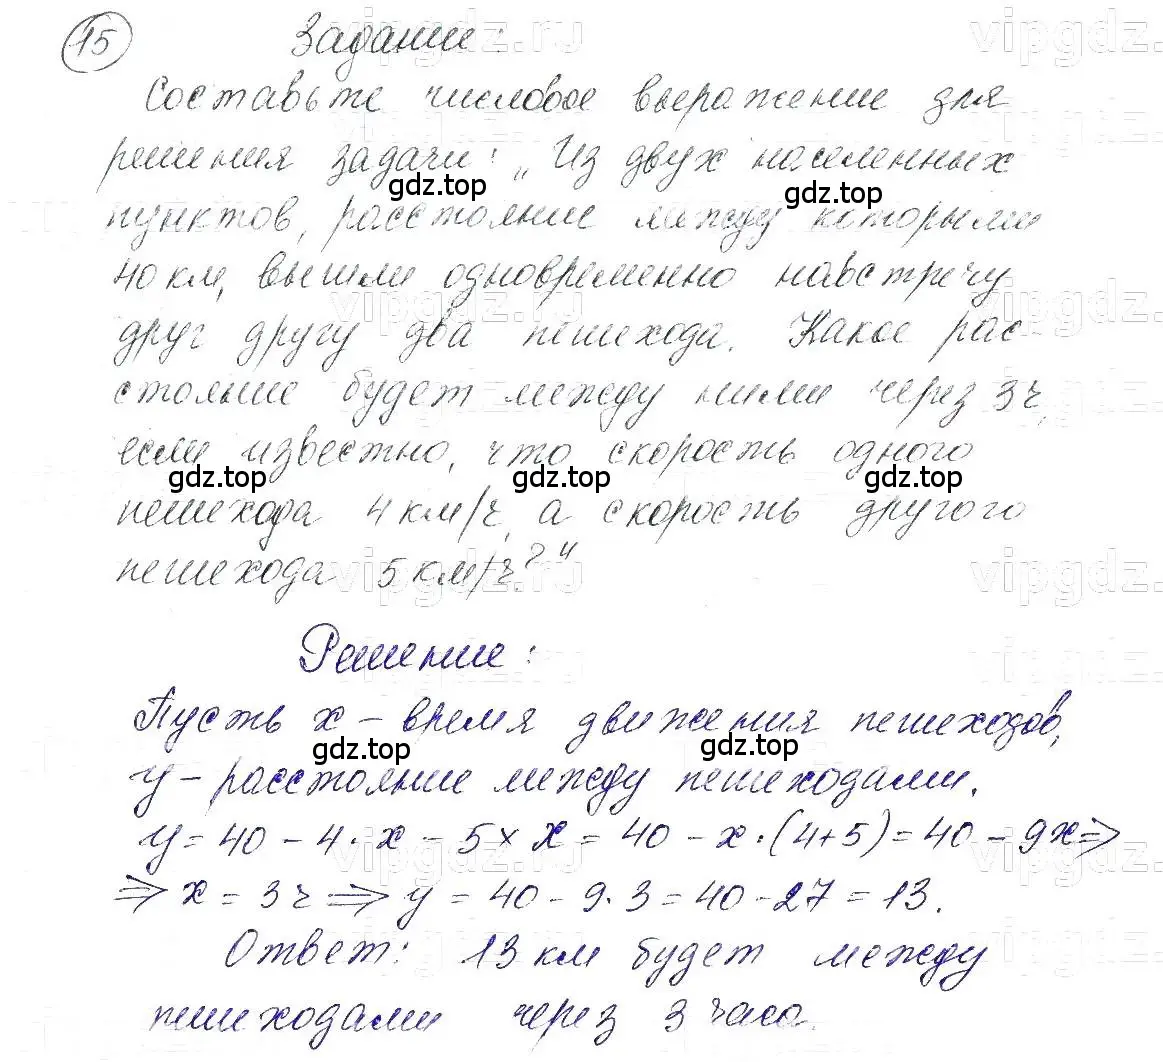 15 Задание:
Составьте числовое выражение для
решения задачи: „Из двух населенных
пунктов, расстояние между которыми
40 км, вышли одновременно навстречу
друг другу два пешехода. Какое рас-
стояние будет между ними через 3 ч,
если известно, что скорость одного
пешехода 4 км/ч, а скорость другого
пешехода 5 км/ч?"
Решение:
Пусть x – время движения пешеходов,
y – расстояние между пешеходами.
y = 40 - 4·x - 5×x = 40 - x·(4+5) = 40 - 9x ⇒
⇒ x = 3ч ⇒ y = 40 - 9·3 = 40 - 27 = 13.
Ответ: 13 км будет между
пешеходами через 3 часа.
vipgdz.ru
gdz.top